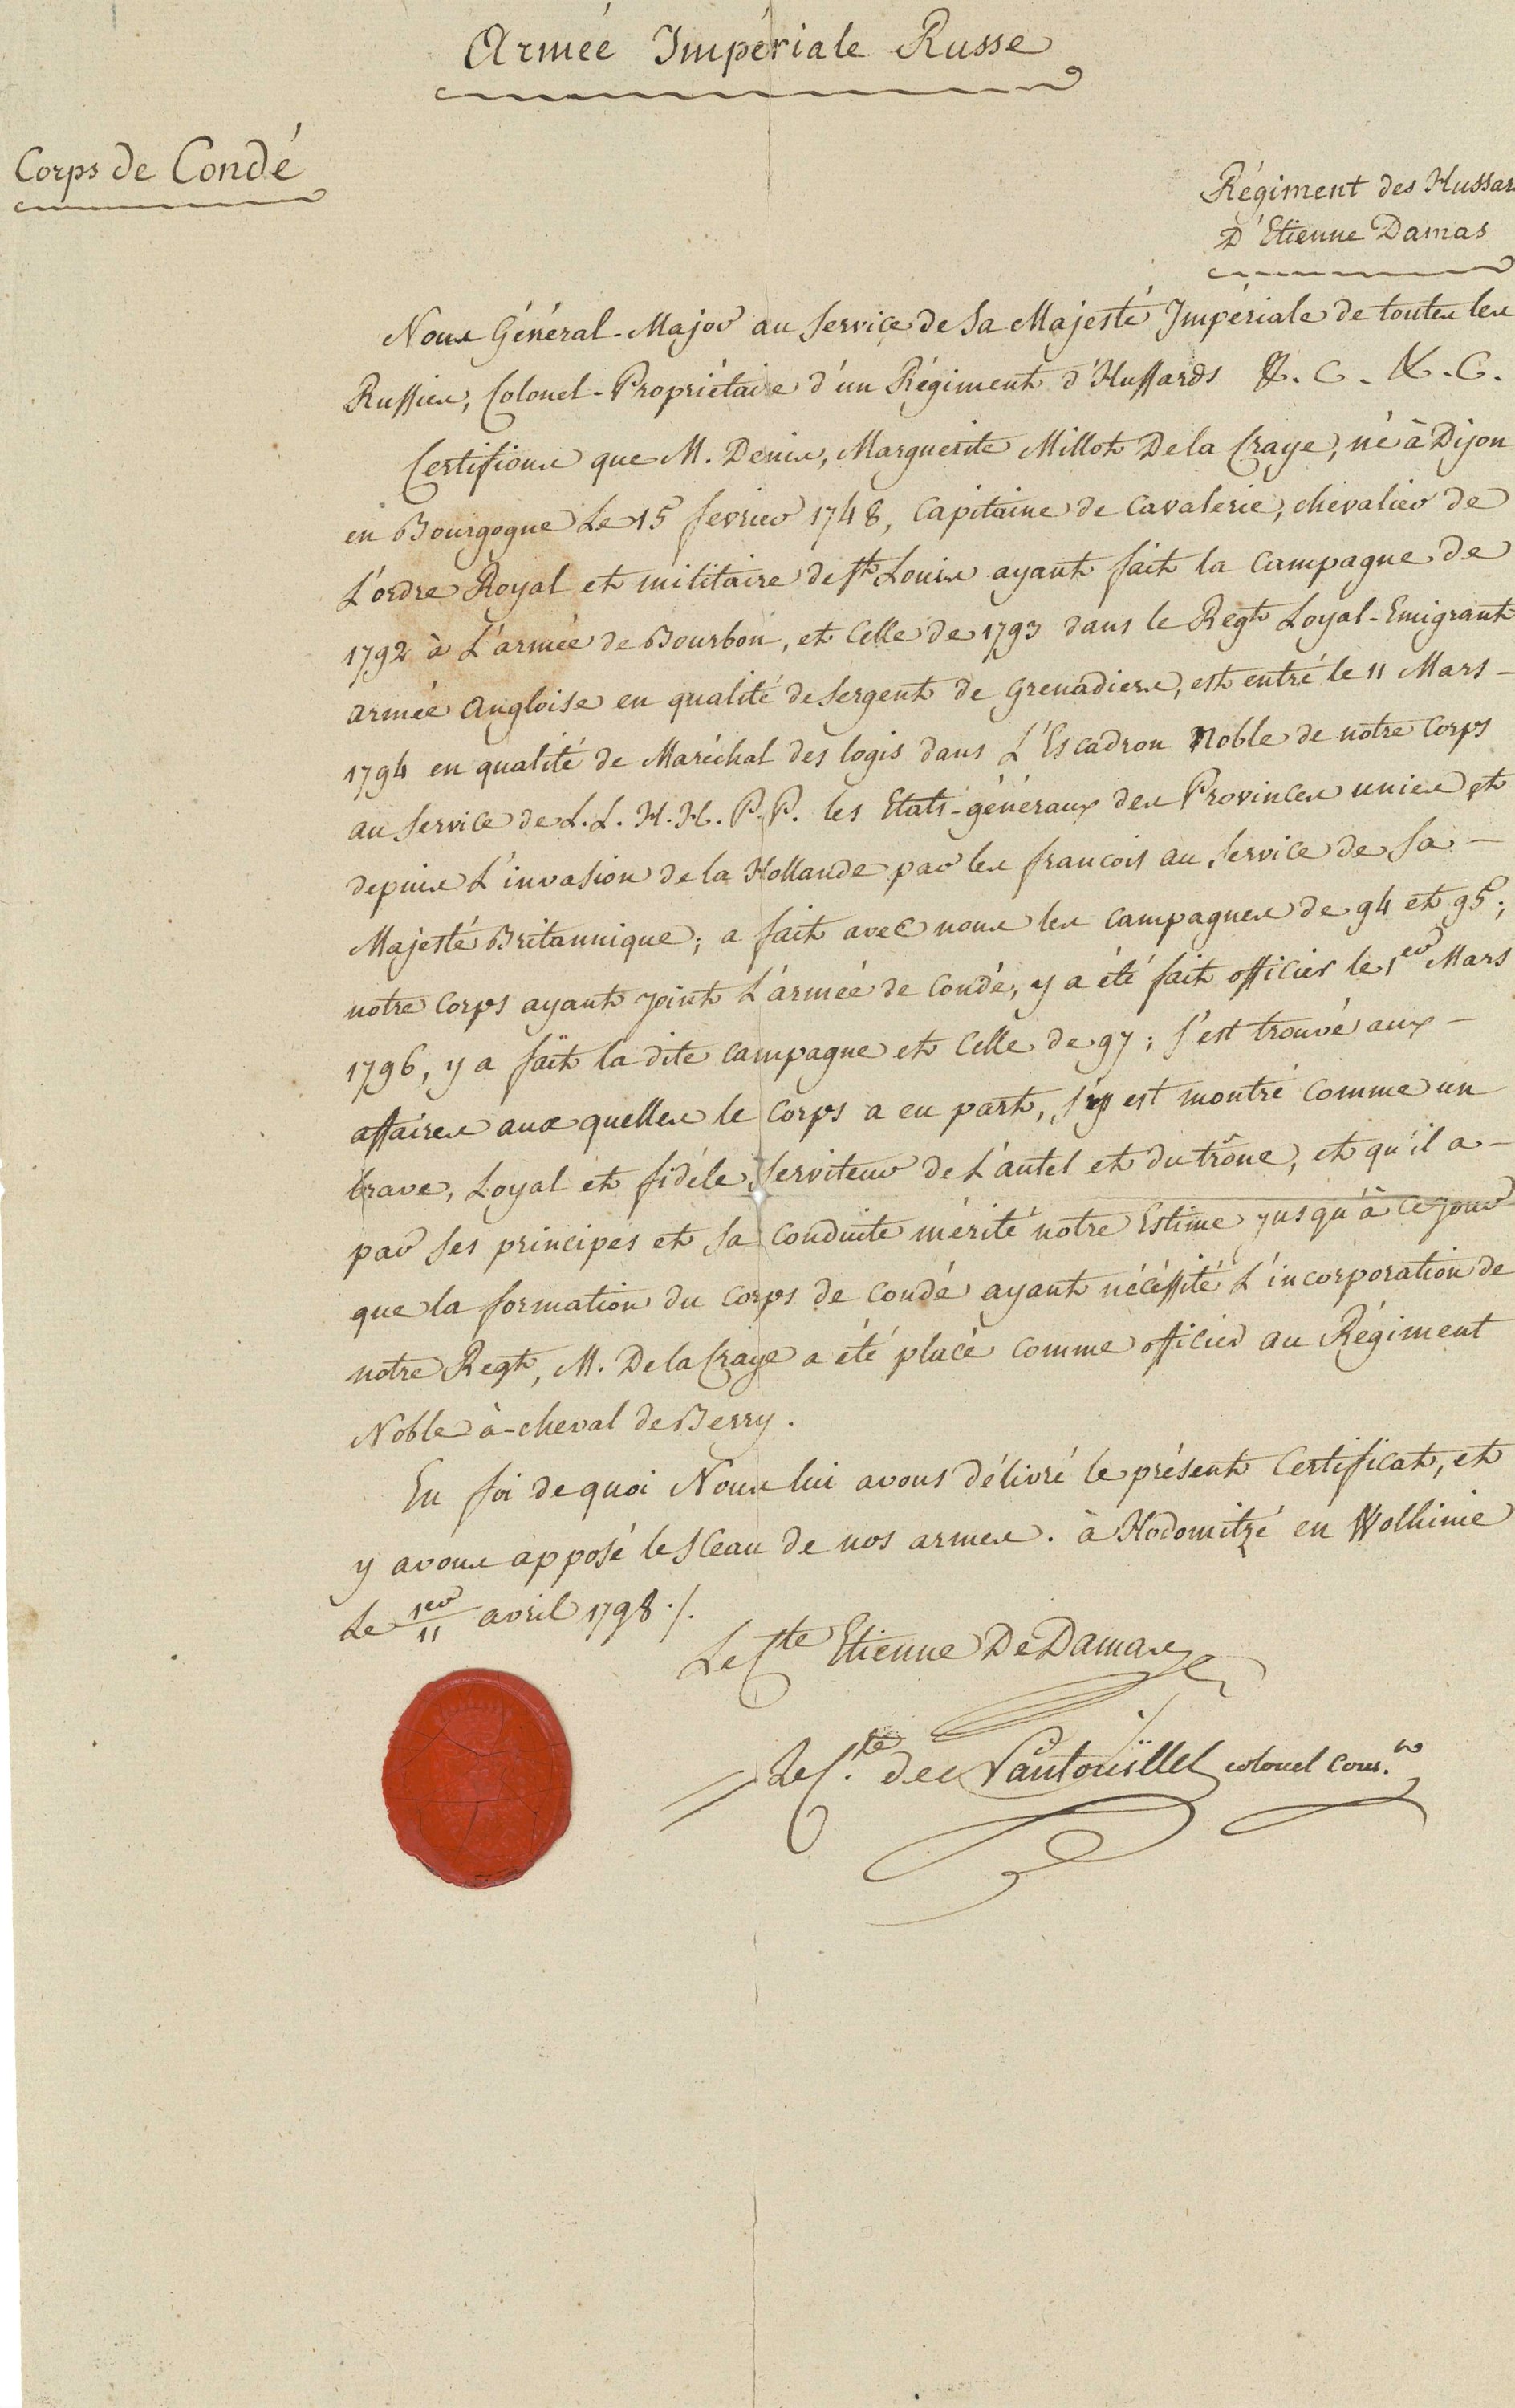 Armée Impériale Russe
Corps de Condé
Régiment des Hussar
D'Etienne Damas
Nous Général-Major au Service de Sa Majesté Impériale de toutes les
Russies, Colonel-Propriétaire d'un Régiment d'Hussards &. C. &. C.
Certifions que M. Denis, Marguerite Millot De la Craye, né à Dijon
en Bourgogne Le 15 fevrier 1748, Capitaine de Cavalerie, chevalier de
L'ordre Royal et militaire de St Louis ayant fait la Campagne de
1792 à L'armée de Bourbon, et Celle de 1793 dans le Regt Loyal-Emigrant
armée Angloise en qualité de Sergent de Grenadiers, est entré le 11 Mars -
1794 en qualité de Maréchal des logis dans L'Escadron Noble de notre Corps
au Service de L.L. H.H. P.P. les Etats-généraux des Provinces unies et
depuis L'invasion de la Hollande par les francois au Service de Sa -
Majesté Britannique; a fait avec nous les Campagnes de 94 et 95;
notre Corps ayant joint L'armée de Condé, y a été fait officier le 1er Mars
1796, y a fait la dite Campagne et Celle de 97; s'est trouvé aux -
affaires aux quelles le Corps a eu part, s'y est montré Comme un
brave, Loyal et fidéle Serviteur de L'autel et du trône, et qu'il a -
par Ses principes et Sa Conduite mérité notre Estime jusqu'à ce jour
que la formation du Corps de Condé ayant nécéssité L'incorporation de
notre Regt, M. De la Craye a été placé Comme officier au Régiment
Noble à-cheval de Berry.
En foi de quoi Nous lui avons délivré le présent Certificat, et
y avons apposé le Sceau de nos armes. à Hodomitzé en Wolhinie
Le 1er/11 avril 1798 ./.
Le Cte Etienne De Damas
Le C.te de Vantouillet colonel com.